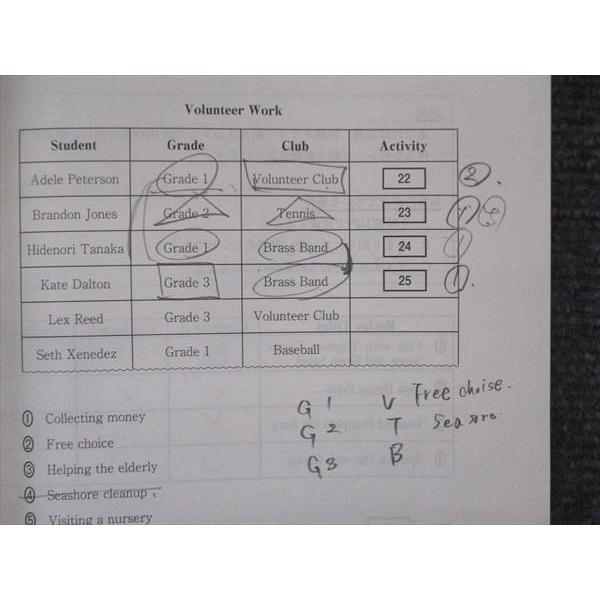 Volunteer Work
Student Grade Club Activity
Adele Peterson Grade 1 Volunteer Club 22 ②.
Brandon Jones Grade 2 Tennis 23 ① ③
Hidenori Tanaka Grade 1 Brass Band 24 ①
Kate Dalton Grade 3 Brass Band 25 ①.
Lex Reed Grade 3 Volunteer Club
Seth Xenedez Grade 1 Baseball
① Collecting money
② Free choice
③ Helping the elderly
④ Seashore cleanup
⑤ Visiting a nursery
G 1 V Free choise.
G 2 T
G3 B